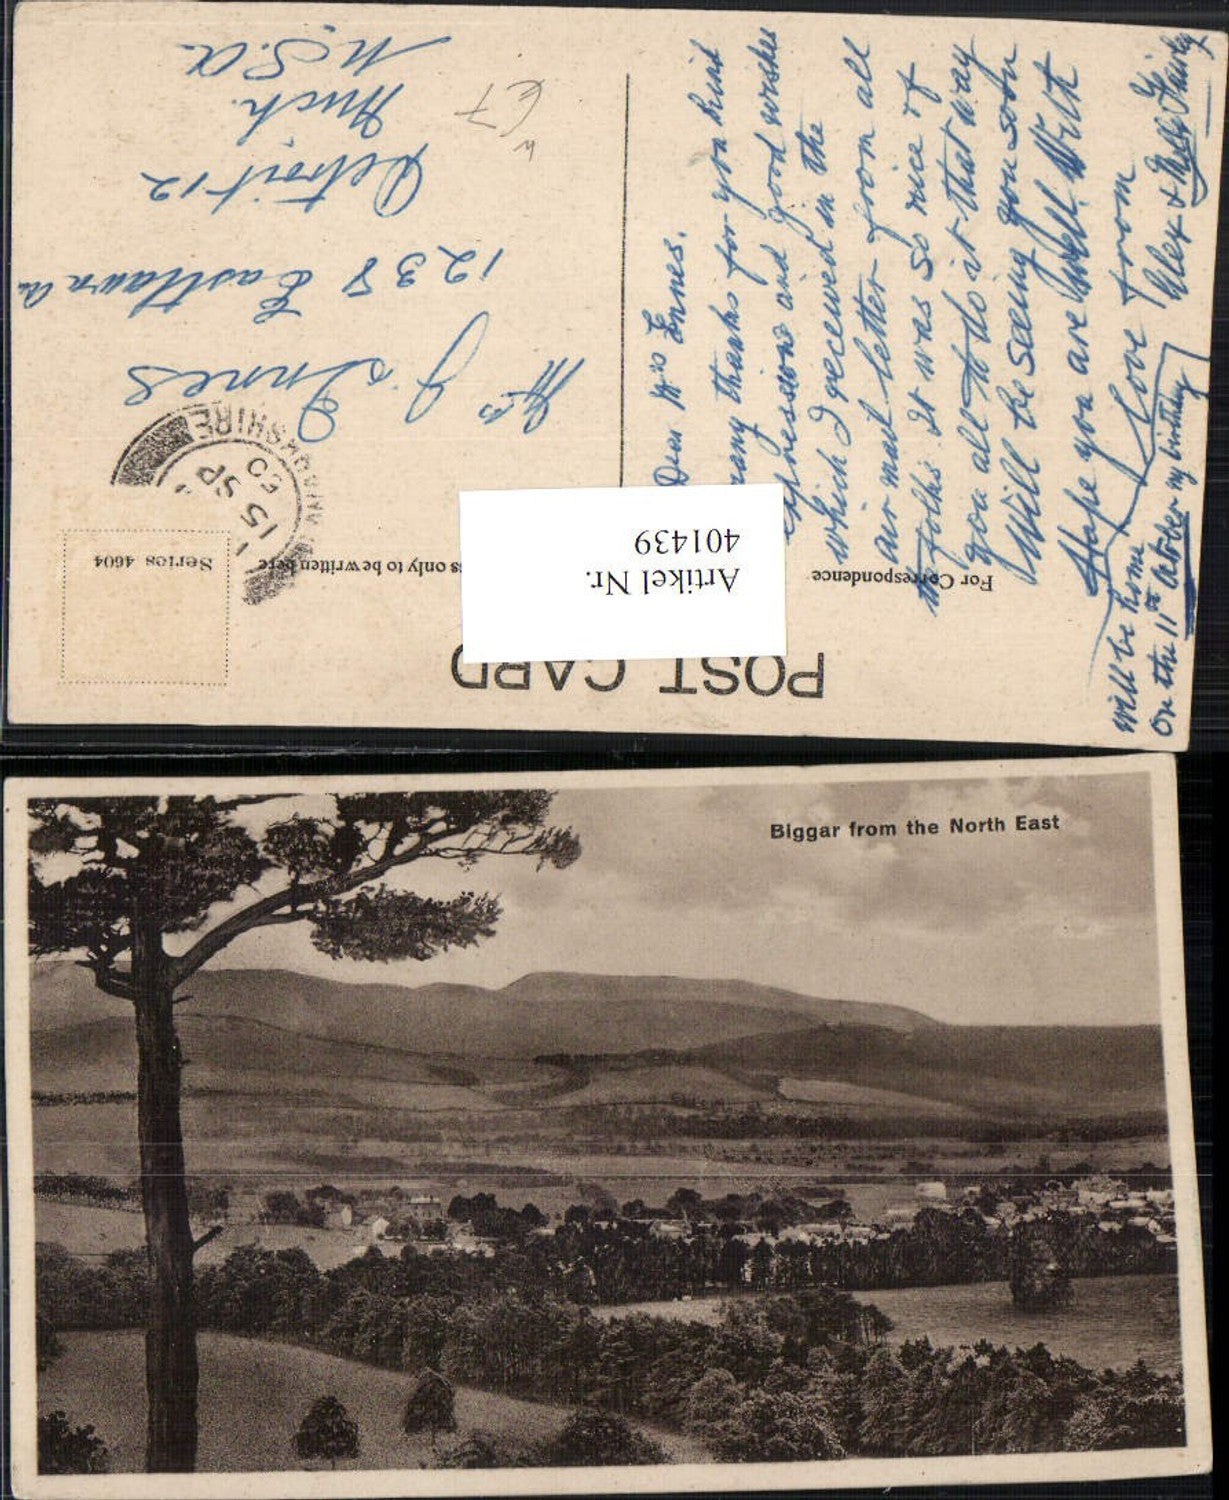 POST CARD
For Correspondence
s only to be written here
Series 4604
Artikel Nr.
401439
15 SP
60
ANARKSHIRE
Mrs J. Innes
1238 Eastlawn a
Detroit 12
Mich.
U.S.A.
Dear Mrs Ennes.
many thanks for you kind
expressions and good wishes
which I received in the
air mail letter from all
the folks. It was so nice of
you all to do it that way
Will be seeing you soon
Hope you are Well. With
Love from
Alex & Nelly Fairley
will be home
on the 11th october my birthday
Biggar from the North East